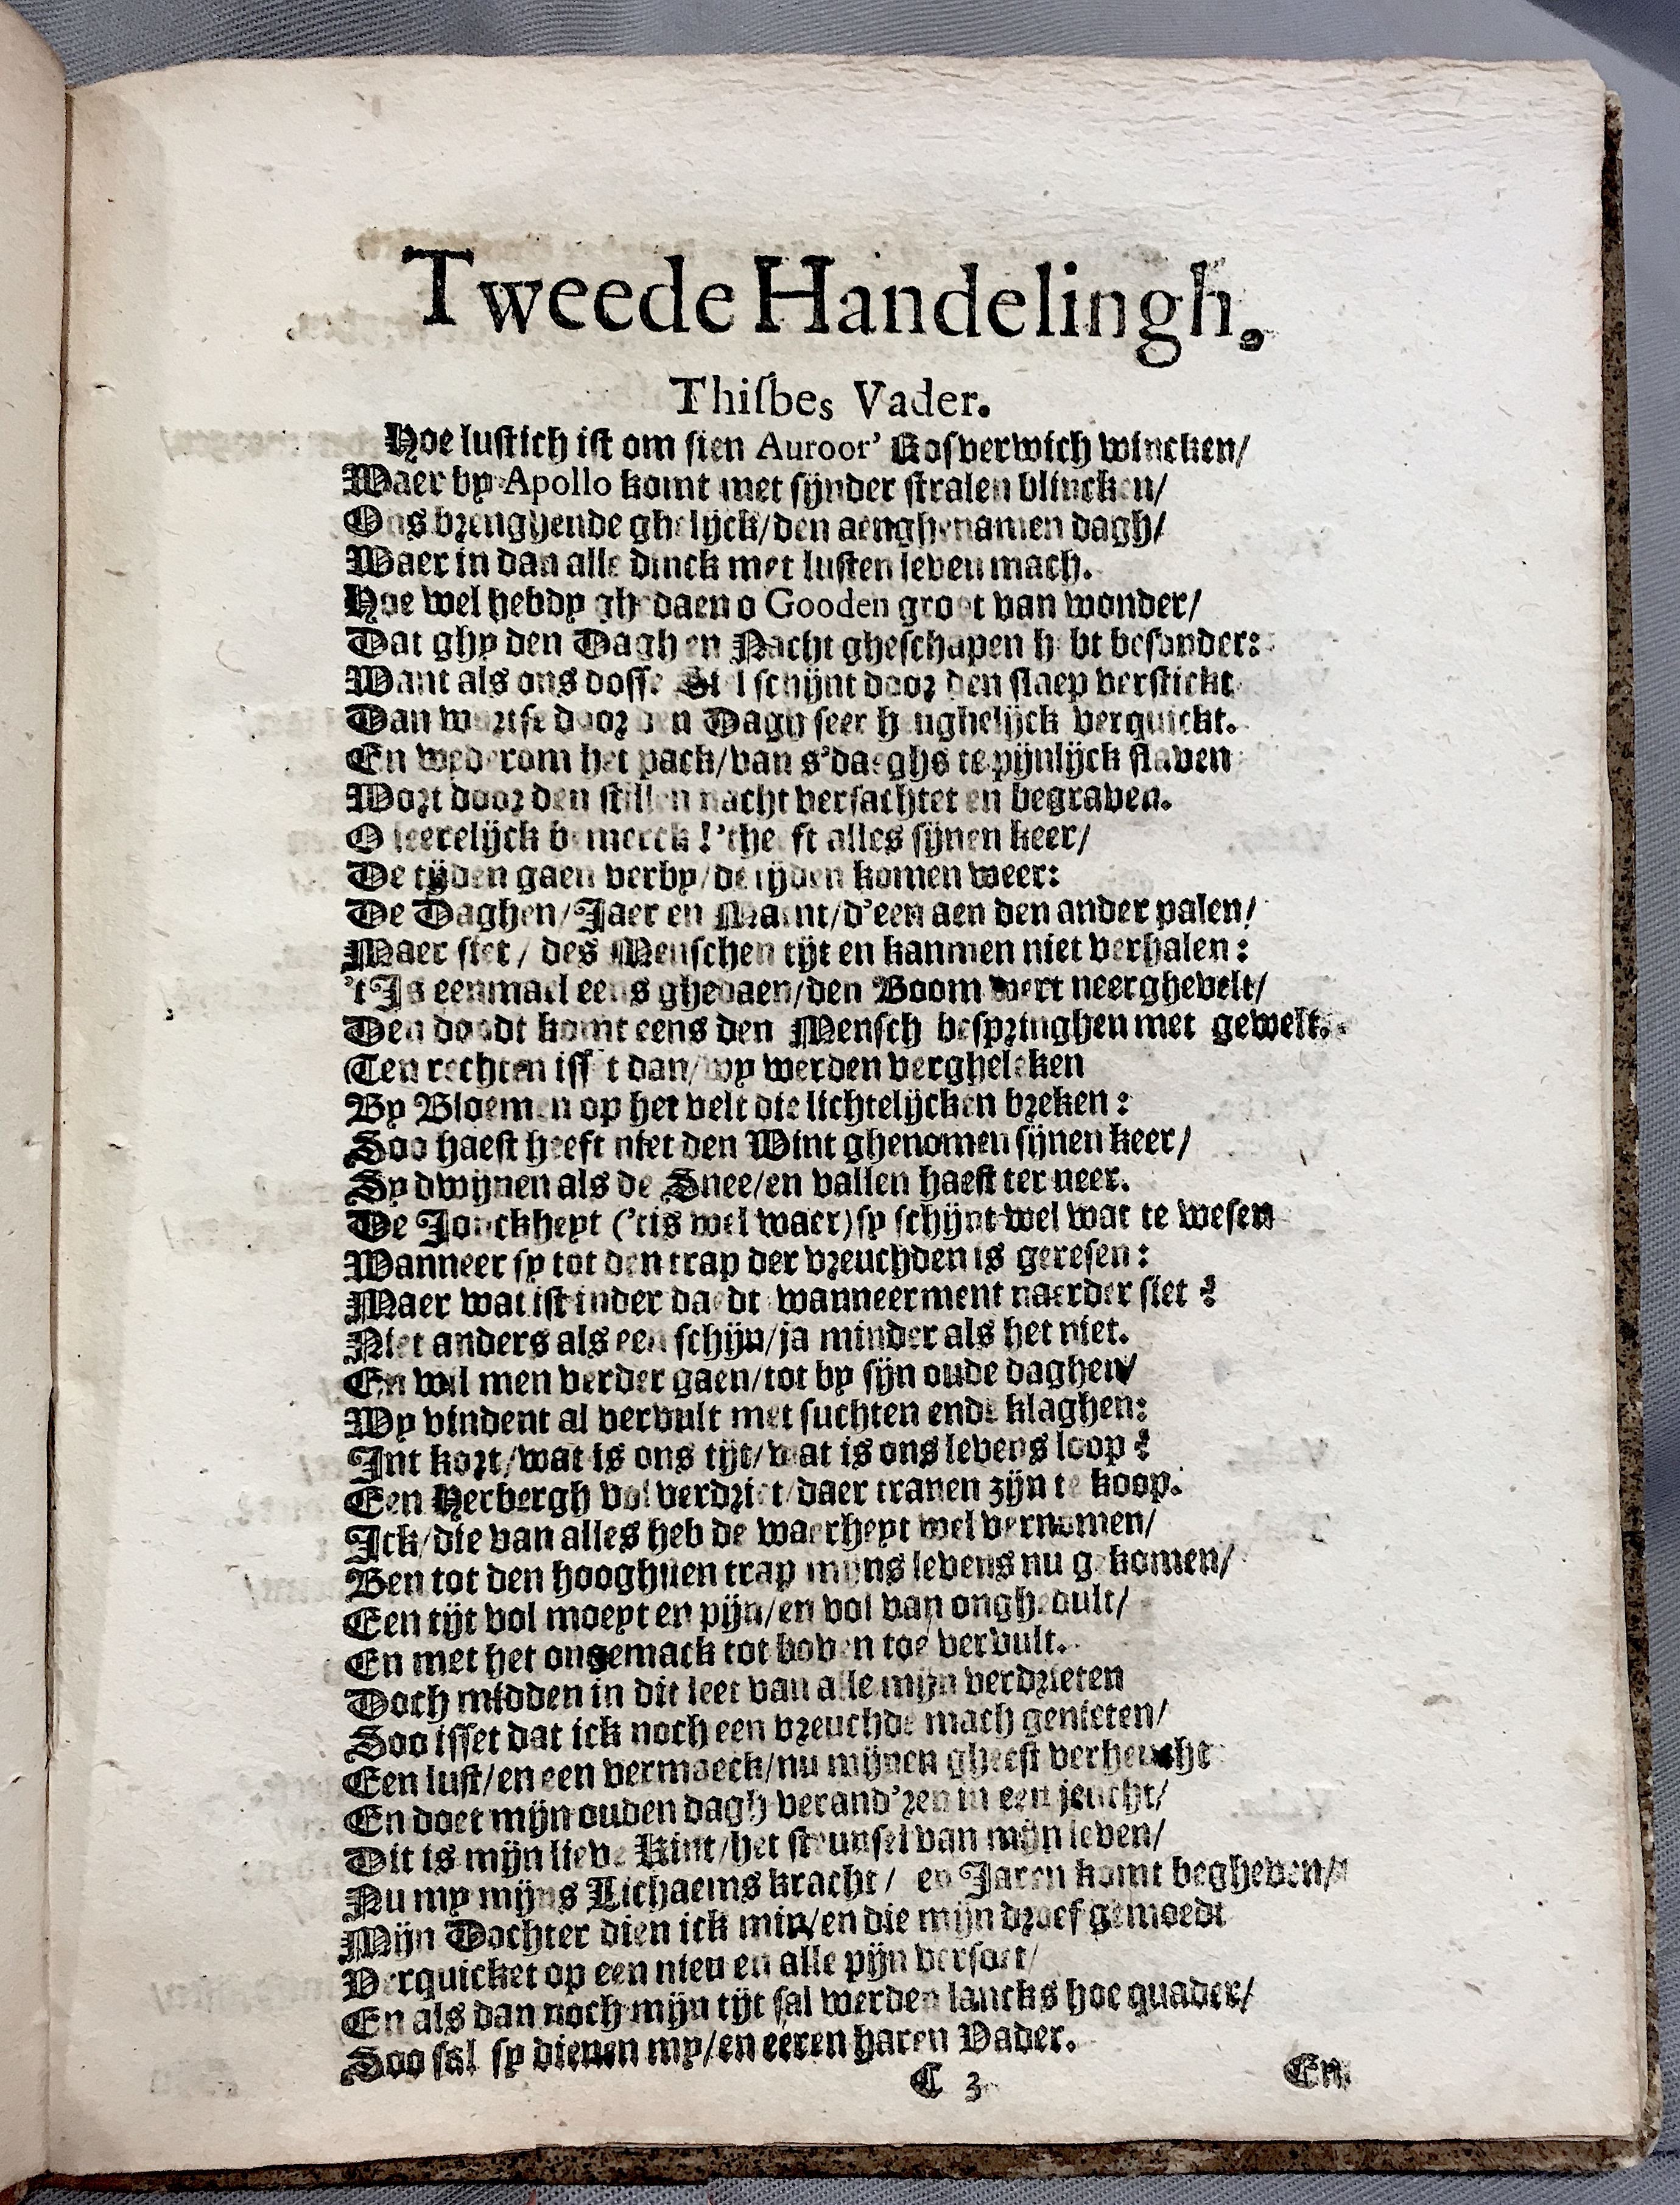 Tweede Handelingh.
Thiſbes Vader.
Hoe luſtich iſt om ſien Auroor' Rosverwich wincken/
Waer by Apollo komt met ſijnder ſtralen blincken/
Ons brenghende ghelijck/den aenghenamen dagh/
Waer in dan alle dinck met luſten leven mach.
Hoe wel hebdy ghedaen o Gooden groot van wonder/
Dat ghy den Dagh en Nacht gheſchapen hebt beſonder:
Want als ons doſſe Siel ſchijnt door den ſlaep verſtickt
Dan wortſe door den Dagh ſeer heughelijck verquickt.
En wederom het pack/van s'daeghs te pijnlijck ſlaven
Wort door den ſtillen nacht verſachtet en begraven.
O leerelijck bemerck!'theeft alles ſijnen keer/
De tijden gaen verby/de tijden komen weer:
De Daghen/Jaer en Maent/d'een aen den ander palen/
Maer ſiet/ des Menſchen tijt en kanmen niet verhalen:
't Is eenmael eens ghedaen/den Boom wert neerghevelt/
Den doodt komt eens den Menſch beſpringhen met gewelt.
Ten rechten iſſ't dan/wy werden vergheleken
By Bloemen op het velt die lichtelijcken breken:
Soo haeſt heeft niet den Wint ghenomen ſijnen keer/
Sy dwijnen als de Snee/en vallen haeſt ter neer.
De Jonckheyt ('tis wel waer)ſy ſchijnt wel wat te weſen
Wanneer ſy tot den trap der vreuchden is gereſen:
Maer wat iſt inder daedt wanneerment naerder ſiet?
Niet anders als een ſchijn/ja minder als het niet.
En wil men verder gaen/tot by ſijn oude daghen/
Wy vindent al vervult met ſuchten ende klaghen:
Int kort/wat is ons tijt/wat is ons levens loop?
Een Herbergh vol verdriet/daer tranen zijn te koop.
Ick/die van alles heb de waerheyt wel vernomen/
Ben tot den hooghſten trap mijns levens nu gekomen/
Een tijt vol moeyt en pijn/en vol van onghedult/
En met het ongemack tot boven toe vervult.
Doch midden in dit leet van alle mijn verdrieten
Soo iſſet dat ick noch een vreuchde mach genieten/
Een luſt/en een vermaeck/nu mijnen gheeſt verheucht
En doet mijn ouden dagh verand'ren in een jeucht/
Dit is mijn lieve Kint/het ſteunſel van mijn leven/
Nu my mijns Lichaems kracht/ en Jaren komt begheven/
Mijn Dochter dien ick min/en die mijn droef gemoedt
Verquicket op een nieu en alle pijn verſoet/
En als dan noch mijn tijt ſal werden lancks hoe quader/
Soo ſal ſy dienen my/en eeren haren Vader.
C 3
En